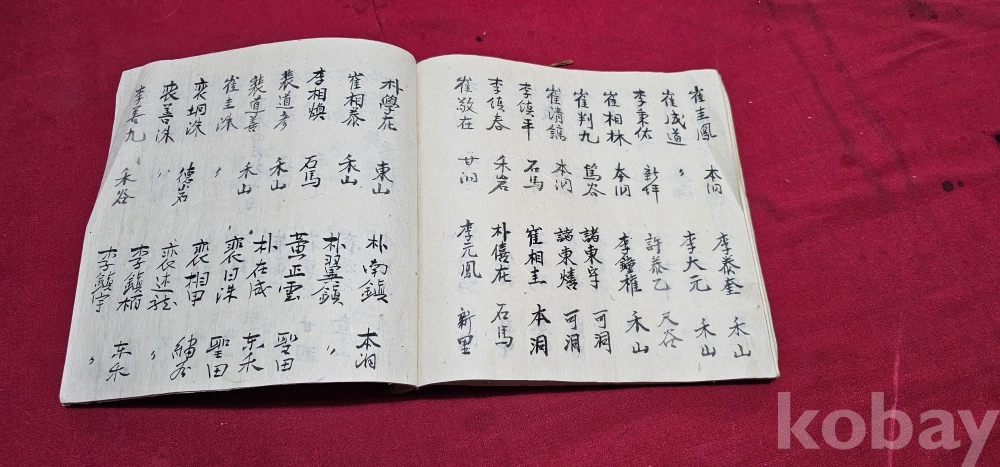 崔圭鳳 本洞
崔成道 〃
李秉佑 新伴
崔相林 本洞
崔判九 篤谷
崔清鎬 本洞
李鎮平 石馬
李鎮春 禾岩
崔敬在 廿洞
李泰奎 禾山
李大元 禾山
許泰乙 尺谷
李鐘權 禾山
諸東宇 可洞
諸東熺 可洞
崔相圭 本洞
朴僖在 石馬
李元鳳 新里
朴學在 東山
崔相泰 禾山
李相煥 石馬
裴道彦 禾山
裴道善 禾山
崔圭洙 〃
裵垌洙 德岩
裵善洙 〃
李善九 禾谷
朴南鎮 本洞
朴翼鎮 〃
黃正雲 聖田
朴在成 东禾
裵日洙 聖田
裵相甲 谷
裵述 〃
李鎮柄 东禾
李鎮宇 〃
kobay